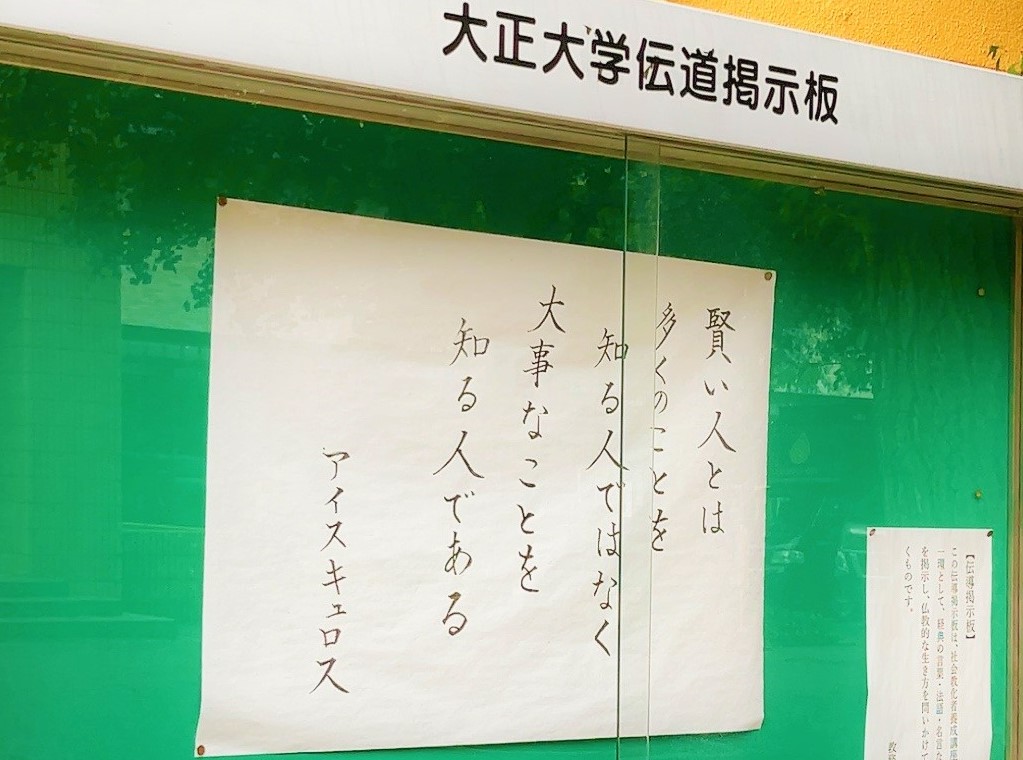 大正大学伝道掲示板
賢い人とは
多くのことを
知る人ではなく
大事なことを
知る人である
アイスキュロス
【伝導掲示板】
この伝導掲示板は、社会教化者養成講座
一環として、経典の言葉・法語・名言な
を掲示し、仏教的な生き方を問いかけて
くものです。
教務